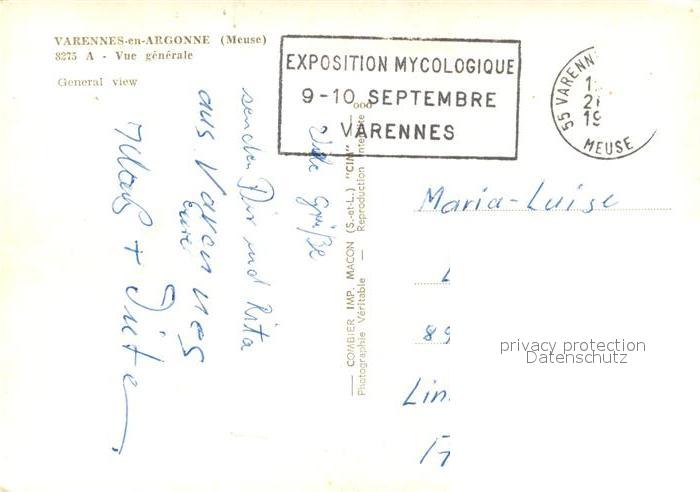 VARENNES-en-ARGONNE (Meuse)
8275 A - Vue générale
General view
EXPOSITION MYCOLOGIQUE
9-10 SEPTEMBRE
VARENNES
55 VARENN
21
19
MEUSE
Viele Grüße
senden Dir und Rita
aus Varennes
Eure
Klaus + Dieter
— COMBIER IMP. MACON (S.-et-L.) "CIM" —
Photographie Véritable — Reproduction interdite
Maria-Luise
89
Lin
privacy protection
Datenschutz